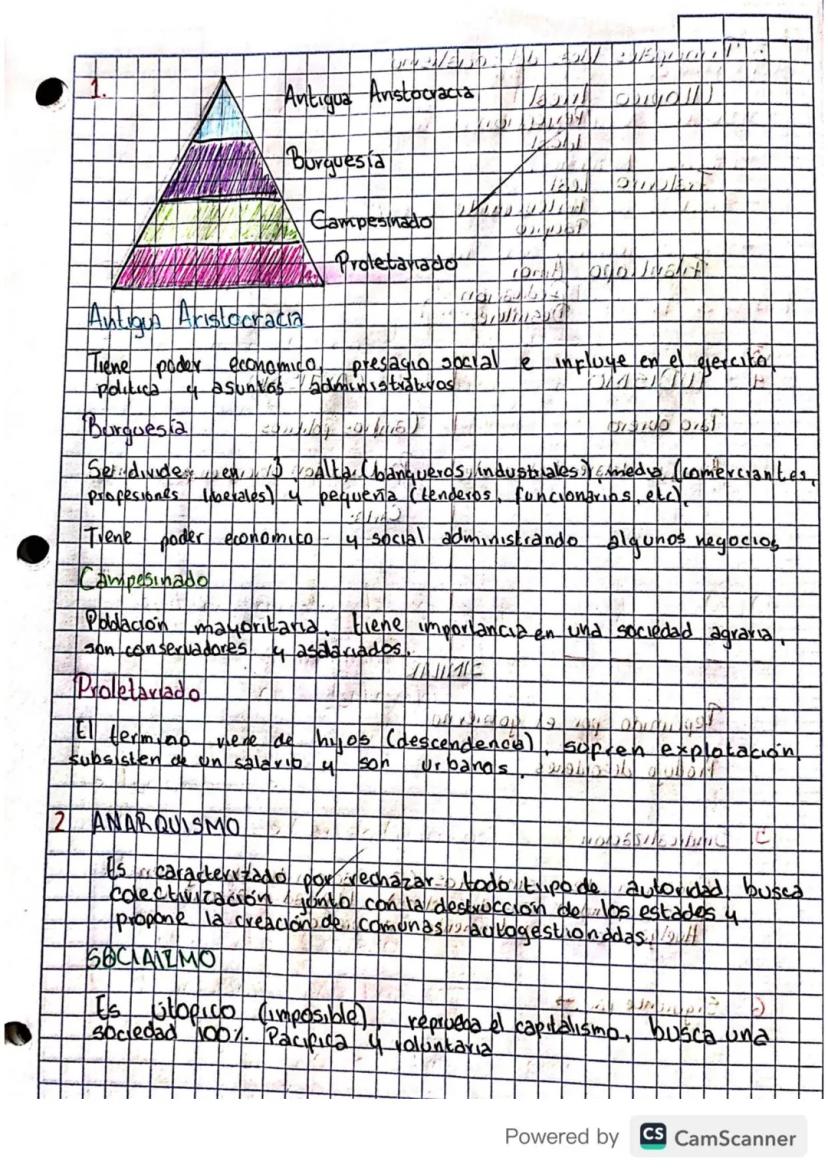 1.
Antigua Aristocracia
Burguesía
Campesinado
Proletariado
Antigua Aristocracia
Tiene poder economico, presagio social e influye en el ejercito,
politica y asuntos administrativos
Burguesía
Se divide en 3 Alta (banqueros, industriales), media (comerciantes,
profesiones liberales) y pequeña (tenderos, funcionarios, etc).
Tiene poder economico y social administrando algunos negocios
Campesinado
Población mayoritaria, tiene importancia en una sociedad agraria,
son conservadores y asalariados.
Proletariado
El termino viene de hijos (descendencia), sopren explotación,
subsisten de un salario y son urbanos.
2 ANARQUISMO
Es caracterizado por rechazar todo tipo de autoridad, busca
colectivización junto con la destrucción de los estados y
propone la creación de comunas autogestionadas.
SOCIALIZMO
Es útopico (imposible), reprueba el capitalismo, busca una
sociedad 100% Pacifica y voluntaria
Powered by CS CamScanner